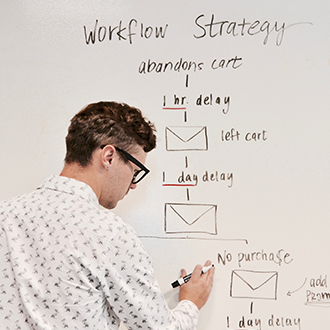 Workflow Strategy
abandons cart
1 hr. delay
left cart
1 day delay
No purcha$e
add
1 day delay